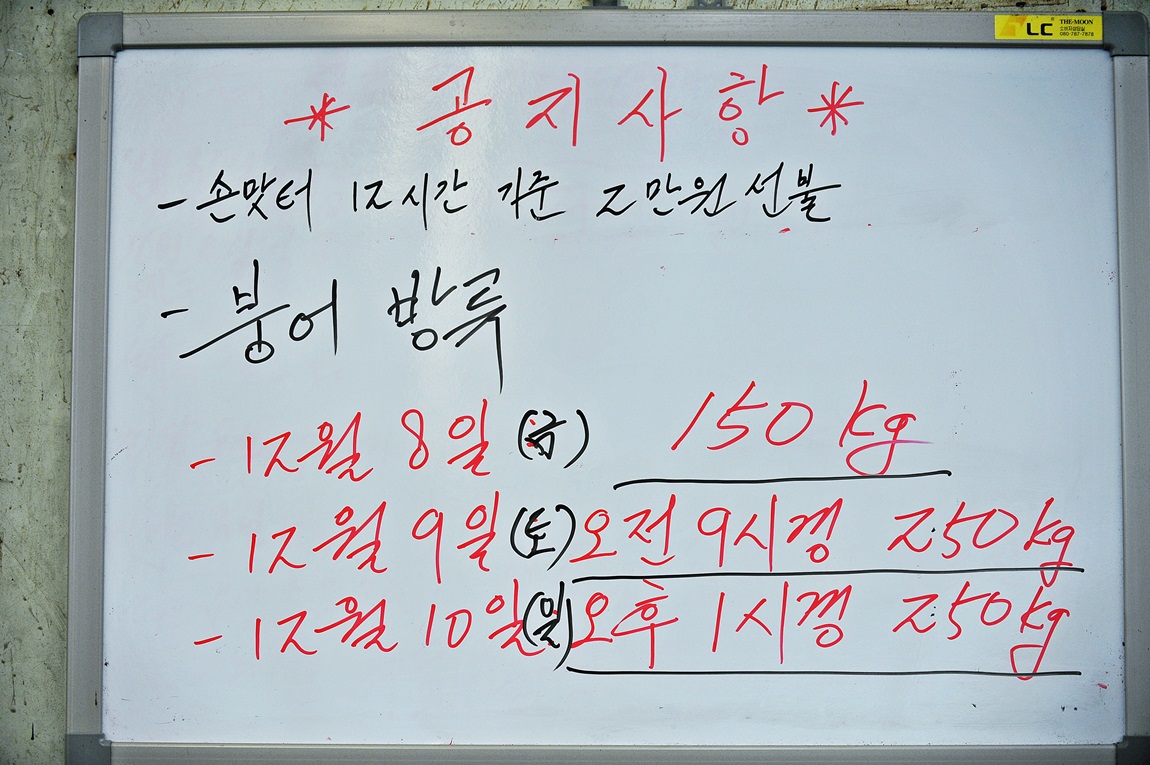 LC THE-MOON
소비자상담실
080-787-7878
* 공지사항 *
- 손맛터 12시간 기준 2만원 선불
- 붕어 방류
- 12월 8일 (금) 150 kg
- 12월 9일 (토) 오전 9시경 250 kg
- 12월 10일 (일) 오후 1시경 250 kg